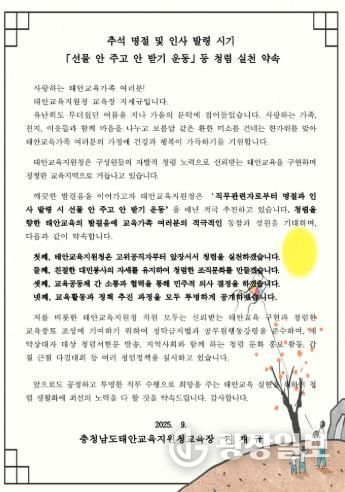 추석 명절 및 인사 발령 시기
「선물 안 주고 안 받기 운동」 등 청렴 실천 약속
사랑하는 태안교육가족 여러분!
태안교육지원청 교육장 지재규입니다.
유난히도 무더웠던 여름을 지나 가을의 문턱에 접어들었습니다. 사랑하는 가족,
친지, 이웃들과 함께 마음을 나누고 보름달 같은 환한 미소를 건네는 한가위를 맞아
태안교육가족 여러분의 가정에 건강과 행복이 가득하기를 기원합니다.
태안교육지원청은 구성원들의 자발적 청렴 노력으로 신뢰받는 태안교육을 구현하며
청정한 교육지역으로 거듭나고 있습니다.
깨끗한 발걸음을 이어가고자 태안교육지원청은 '직무관련자로부터 명절과 인
사 발령 시 선물 안 주고 안 받기 운동'을 매년 적극 추진하고 있습니다. 청렴을
향한 태안교육의 발걸음에 교육가족 여러분의 적극적인 동참과 성원을 기대하며,
다음과 같이 약속합니다.
첫째, 태안교육지원청은 고위공직자부터 앞장서서 청렴을 실천하겠습니다.
둘째, 친절한 대민봉사의 자세를 유지하여 청렴한 조직문화를 만들겠습니다.
셋째, 교육공동체 간 소통과 협력을 통해 민주적 의사 결정을 하겠습니다.
넷째, 교육활동과 정책 추진 과정을 모두 투명하게 공개하겠습니다.
저를 비롯한 태안교육지원청 직원 모두는 신뢰받는 태안교육 구현과 청렴한
교육풍토 조성에 기여하기 위하여 청탁금지법과 공무원행동강령을 준수하며, 계
약상대자 대상 청렴서한문 발송, 지역사회와 함께 하는 청렴 문화 홍보 활동, 갑
질 근절 다짐대회 등 여러 청렴정책을 실시하고 있습니다.
앞으로도 공정하고 투명한 직무 수행으로 희망을 주는 태안교육 실현을 위하여 청
렴 생활화에 최선의 노력을 다 할 것을 약속드립니다. 감사합니다.
2025. 9.
충청남도태안교육지원청교육장 지 재 규